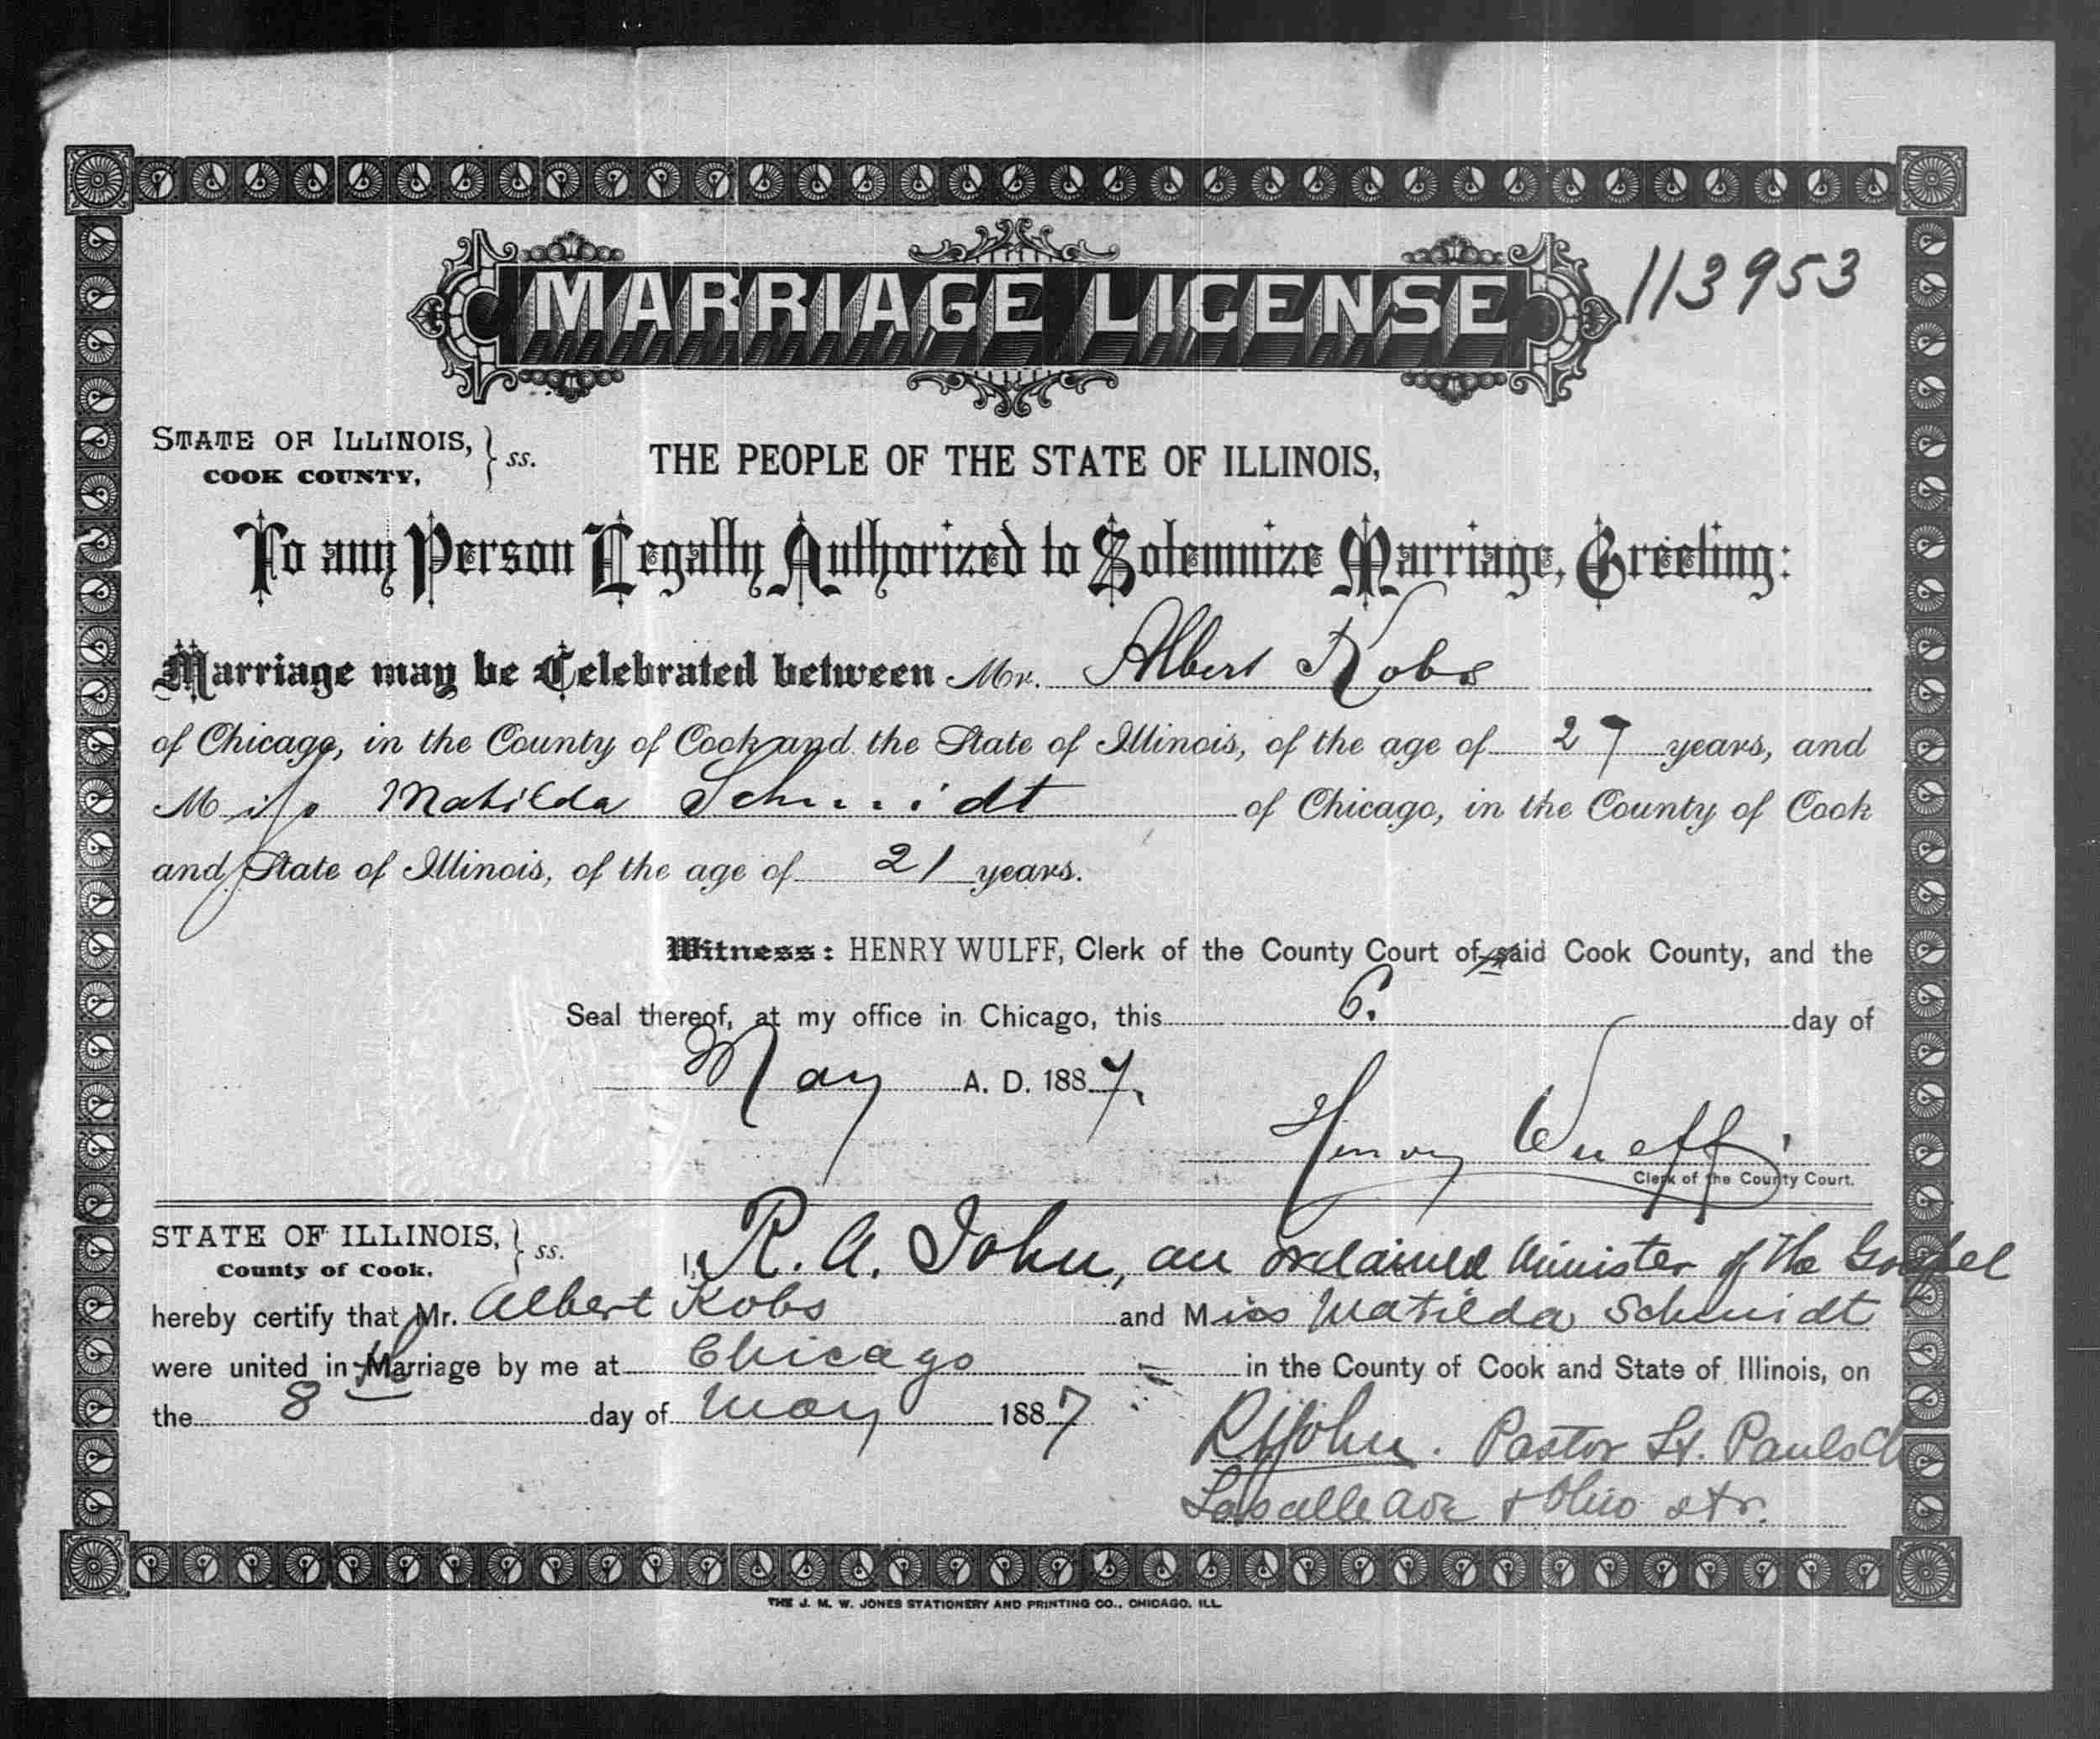 MARRIAGE LICENSE 113953
STATE OF ILLINOIS, } ss.
COOK COUNTY,
THE PEOPLE OF THE STATE OF ILLINOIS,
To any Person Legally Authorized to Solemnize Marriage, Greeting:
Marriage may be Celebrated between Mr. Albert Kobs
of Chicago, in the County of Cook and the State of Illinois, of the age of 27 years, and
Miss Matilda Schmidt of Chicago, in the County of Cook
and State of Illinois, of the age of 21 years.
Witness: HENRY WULFF, Clerk of the County Court of said Cook County, and the
Seal thereof, at my office in Chicago, this 6. day of
May A. D. 1887.
Henry Wulff
Clerk of the County Court.
STATE OF ILLINOIS, } ss.
County of Cook.
I, R. A. John, an ordained Minister of the Gospel
hereby certify that Mr. Albert Kobs and Miss Matilda Schmidt
were united in Marriage by me at Chicago in the County of Cook and State of Illinois, on
the 8th day of May 1887
RAJohn. Pastor St. Pauls Ch
Lasalle Ave & Ohio str.
THE J. M. W. JONES STATIONERY AND PRINTING CO., CHICAGO, ILL.